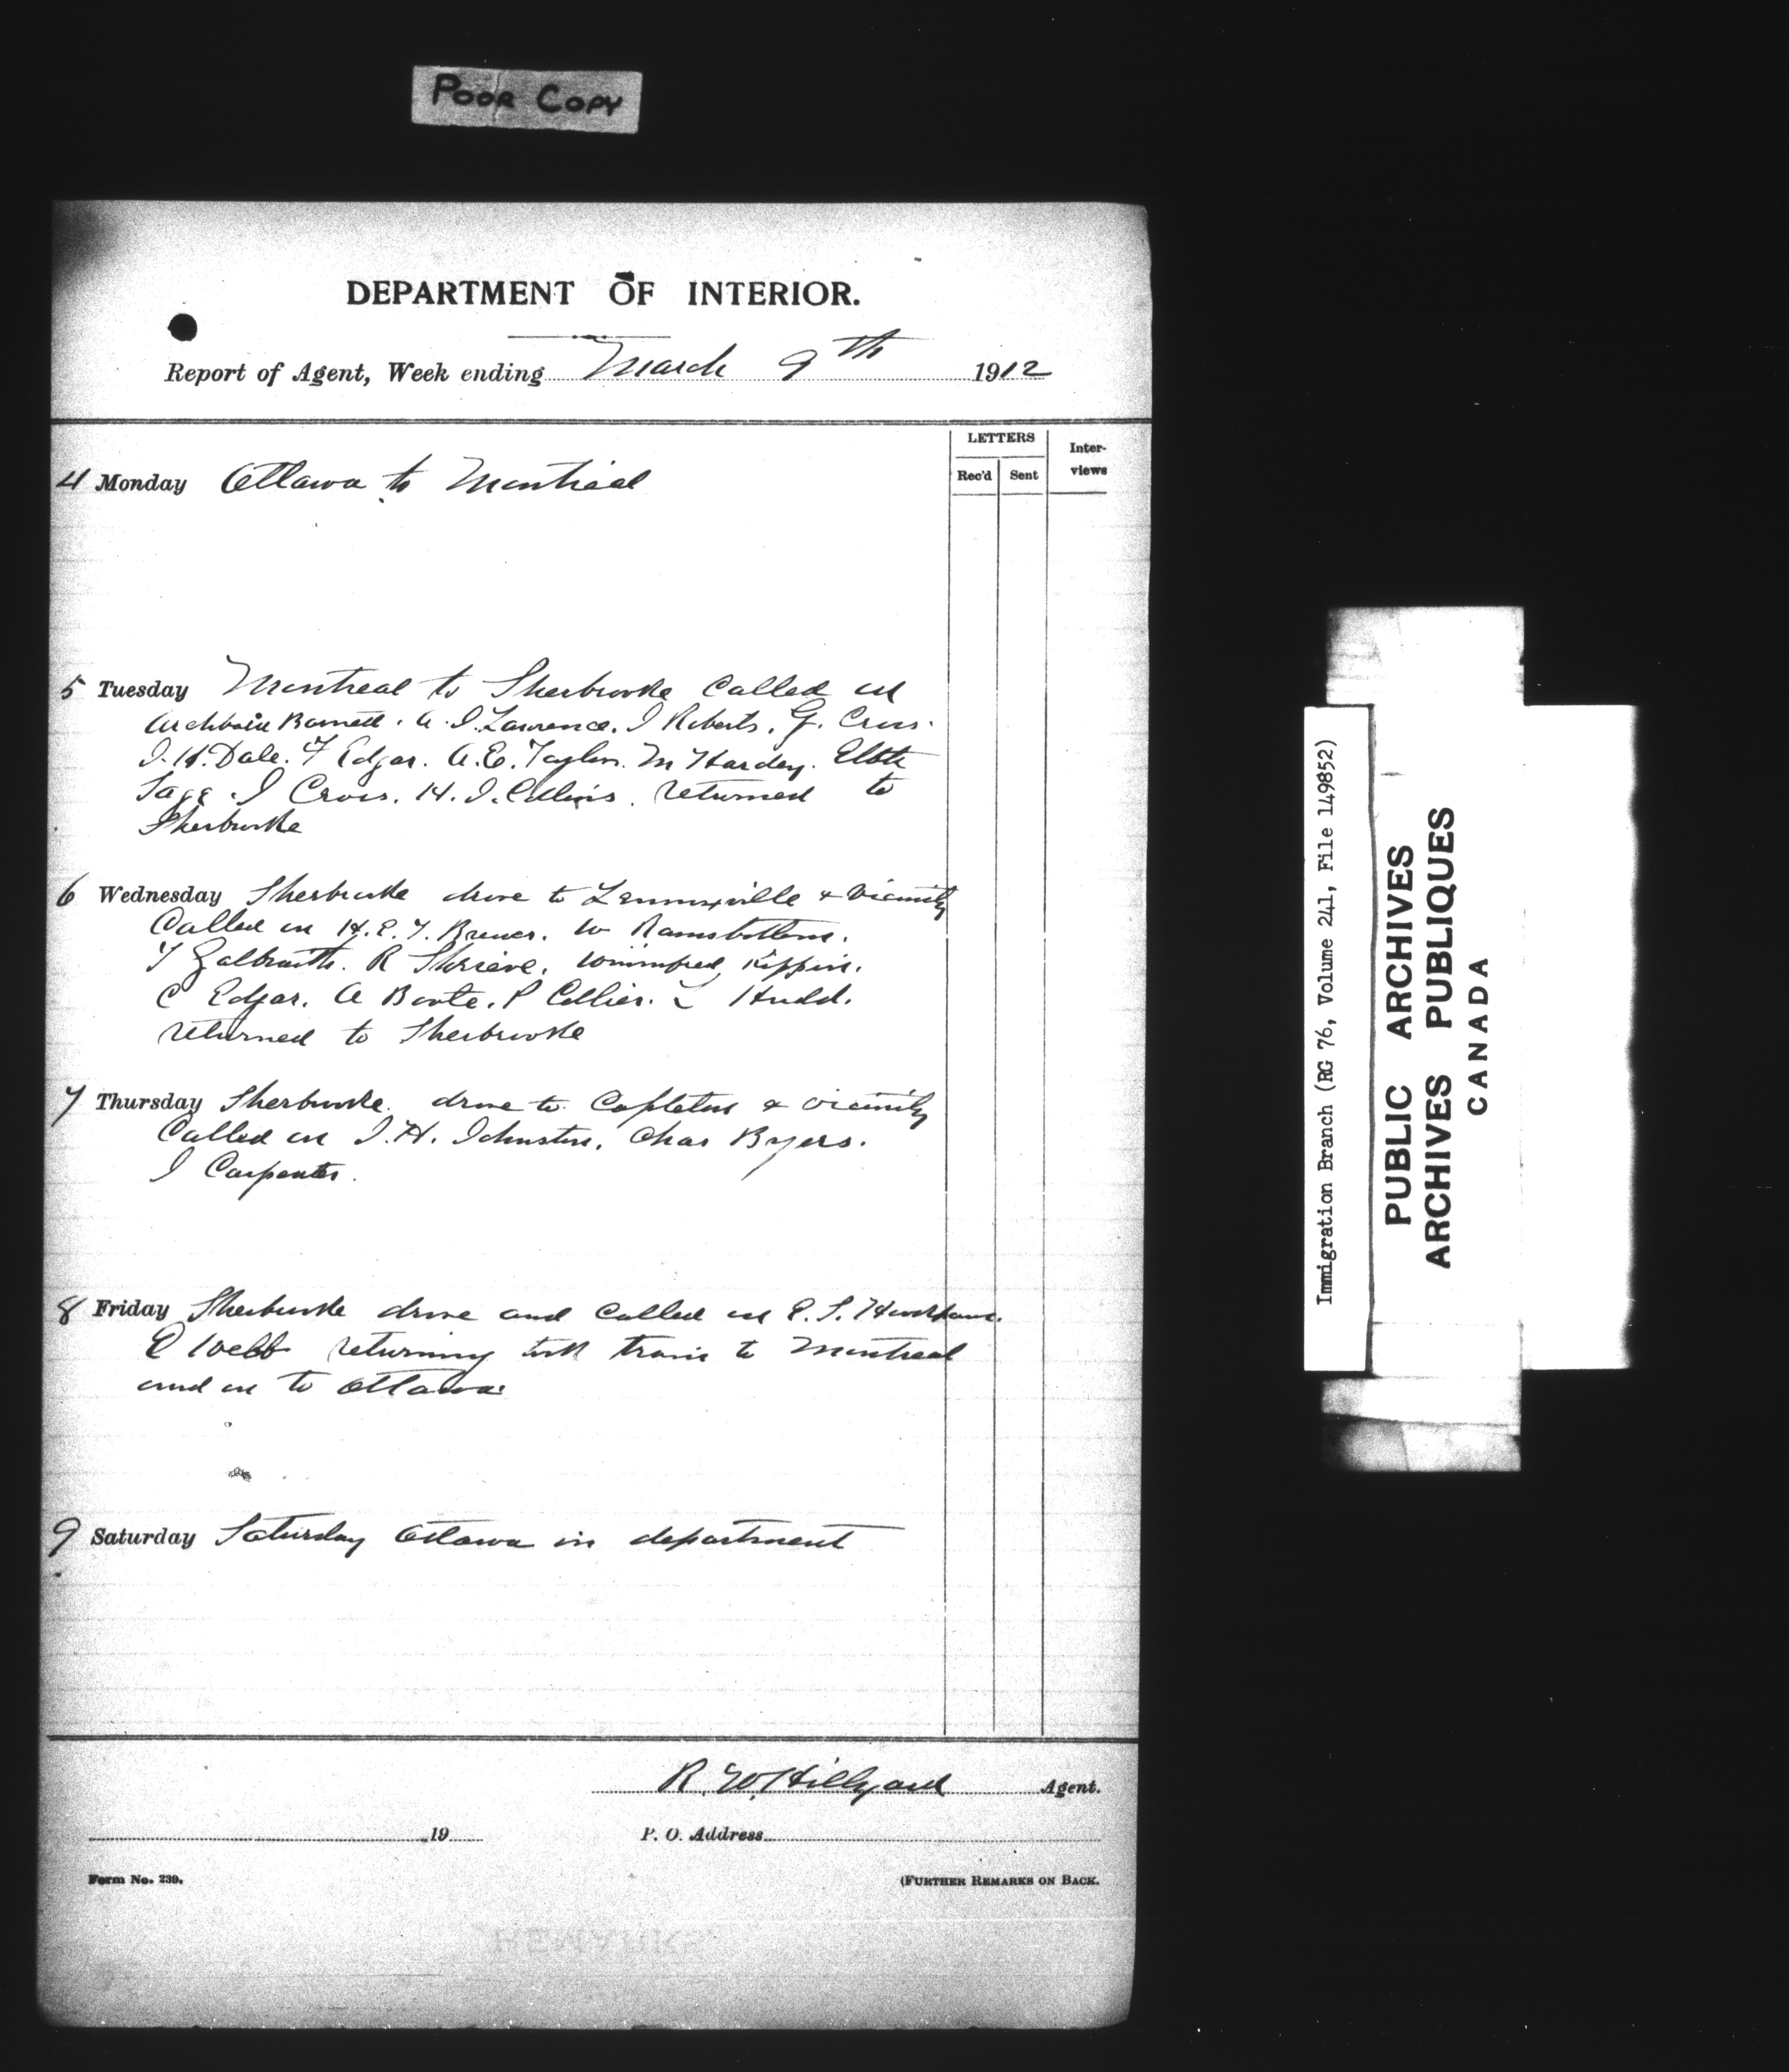 POOR COPY
DEPARTMENT OF INTERIOR.
Report of Agent, Week ending March 9th 1912
LETTERS
Rec'd Sent
Inter-
views
4 Monday Ottawa to Montreal
5 Tuesday Montreal to Sherbrooke Called on
Barnett. A. J. Lawrence. J Roberts. G. Cross.
J. H. Dale. F Edgar. A. E. Taylor. M Hardey.
J Cross. H. J. Collins. returned to
Sherbrooke
6 Wednesday Sherbrooke drive to Lennoxville & vicinity
Called on H. E. T. Brewer. W Ramsbottom.
T Galbraith. R Shrieve. Winnifred Kippin.
C Edgar. A Boote. P Collier. L Hudd.
returned to Sherbrooke
7 Thursday Sherbrooke. drive to Capleton & vicinity
Called on J. H. Johnston. Chas Byers.
J Carpenter.
8 Friday Sherbrooke drive and called on E. S.
E Webb returning took train to Montreal
and on to Ottawa
9 Saturday Saturday Ottawa in department
R. W. Hillyard Agent.
19
P. O. Address
Form No. 239.
(FURTHER REMARKS ON BACK.
Immigration Branch (RG 76, Volume 241, File 149852)
PUBLIC ARCHIVES
ARCHIVES PUBLIQUES
CANADA